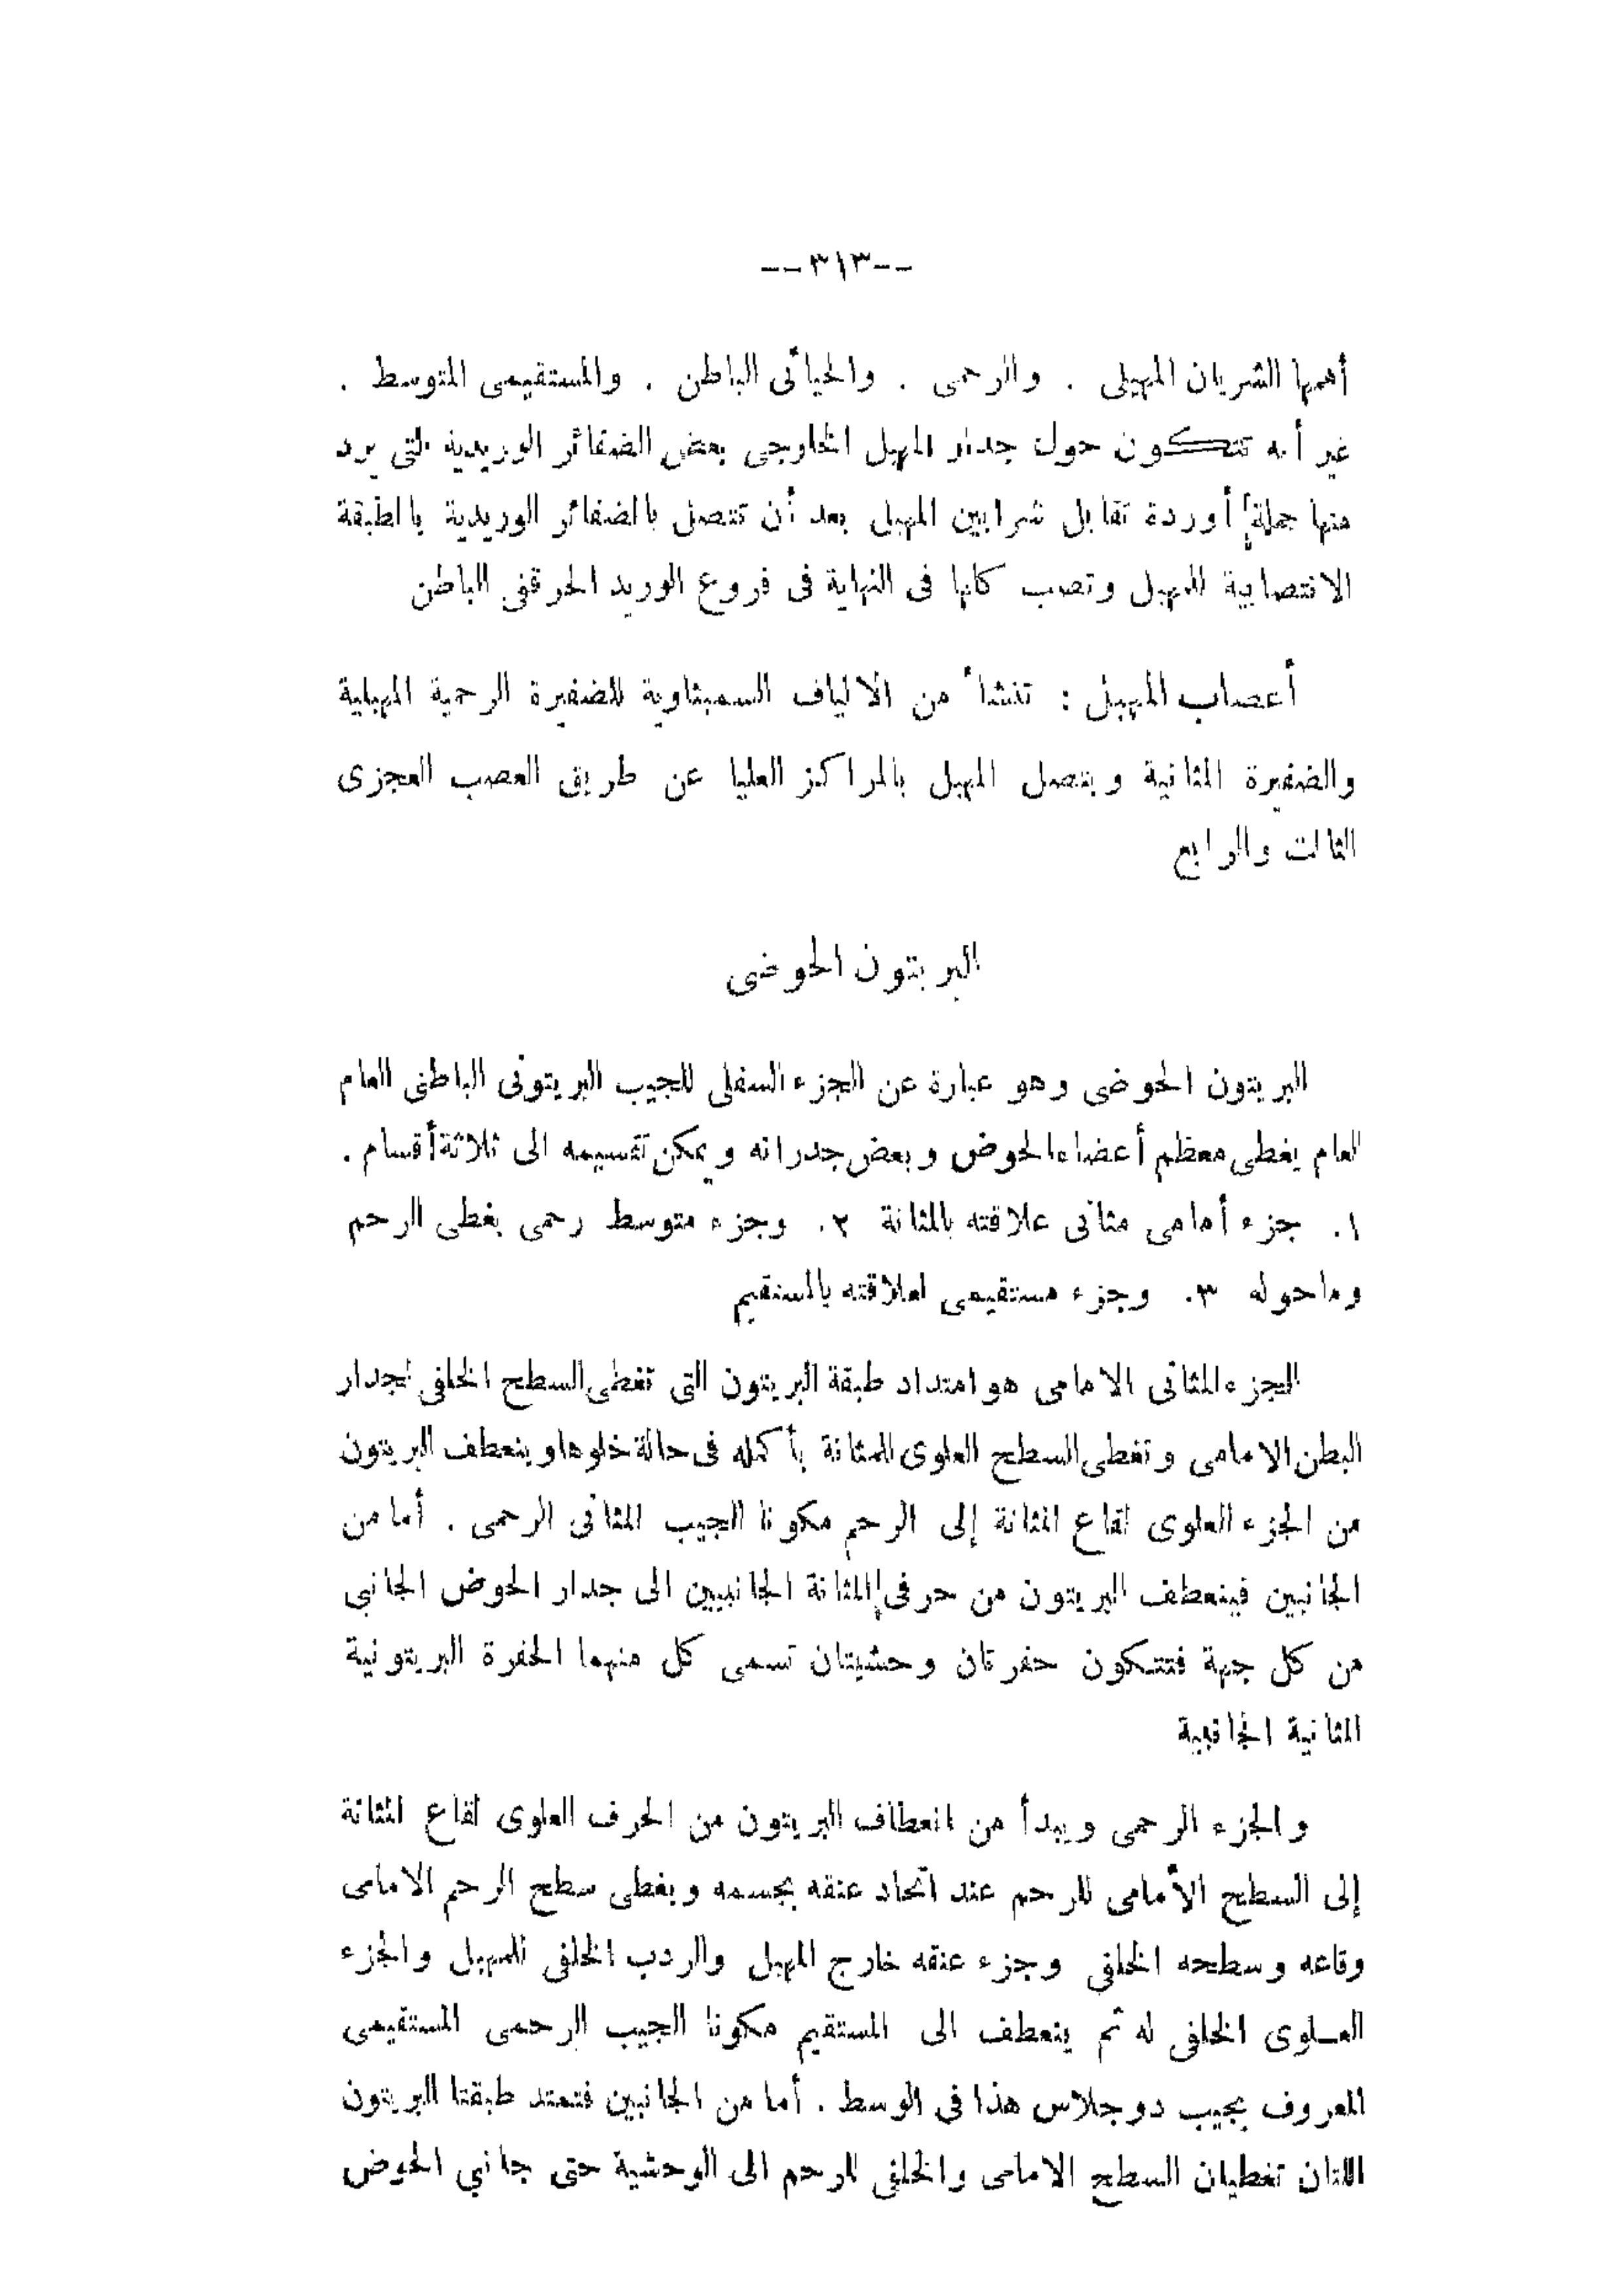 --٣١٣--
أهمها الشريان المهبلى . والرحمى . والحيائى الباطن . والمستقيمى المتوسط .
غير أنه تتكون حول جدار المهبل الخارجى بعض الضفائر الوريدية التى يرد
منها جملة أوردة تقابل شرايين المهبل بعد أن تتصل بالضفائر الوريدية بالطبقة
الانتصابية للمهبل وتصب كلها فى النهاية فى فروع الوريد الحرقفى الباطن
أعصاب المهبل : تنشأ من الألياف السمبثاوية للضفيرة الرحمية المهبلية
والضفيرة المثانية ويتصل المهبل بالمراكز العليا عن طريق العصب العجزى
الثالث والرابع
البريتون الحوضى
البريتون الحوضى وهو عبارة عن الجزء السفلى للجيب البريتونى الباطنى العام
العام يغطى معظم أعضاء الحوض وبعض جدرانه ويمكن تقسيمه الى ثلاثة أقسام .
١. جزء أمامى مثانى علاقته بالمثانة ٢. وجزء متوسط رحمى يغطى الرحم
وماحوله ٣. وجزء مستقيمى لعلاقته بالمستقيم
الجزء المثانى الامامى هو امتداد طبقة البريتون التى تغطى السطح الخلفى لجدار
البطن الامامى وتغطى السطح العلوى للمثانة بأكمله فى حالة خلوها وينعطف البريتون
من الجزء العلوى لقاع المثانة إلى الرحم مكونا الجيب المثانى الرحمى . أما من
الجانبين فينعطف البريتون من حرفى المثانة الجانبيين الى جدار الحوض الجانبى
من كل جهة فتتكون حفرتان وحشيتان تسمى كل منهما الحفرة البريتونية
المثانية الجانبية
والجزء الرحمى ويبدأ من انعطاف البريتون من الحرف العلوى لقاع المثانة
إلى السطح الأمامى للرحم عند اتحاد عنقه بجسمه ويغطى سطح الرحم الامامى
وقاعه وسطحه الخلفى وجزء عنقه خارج المهبل والردب الخلفى للمهبل والجزء
العـلوى الخلفى له ثم ينعطف الى المستقيم مكونا الجيب الرحمى المستقيمى
المعروف بجيب دوجلاس هذا فى الوسط . أما من الجانبين فتمتد طبقتا البريتون
اللتان تغطيان السطح الامامى والخلفى للرحم الى الوحشية حتى جانبي الحوض